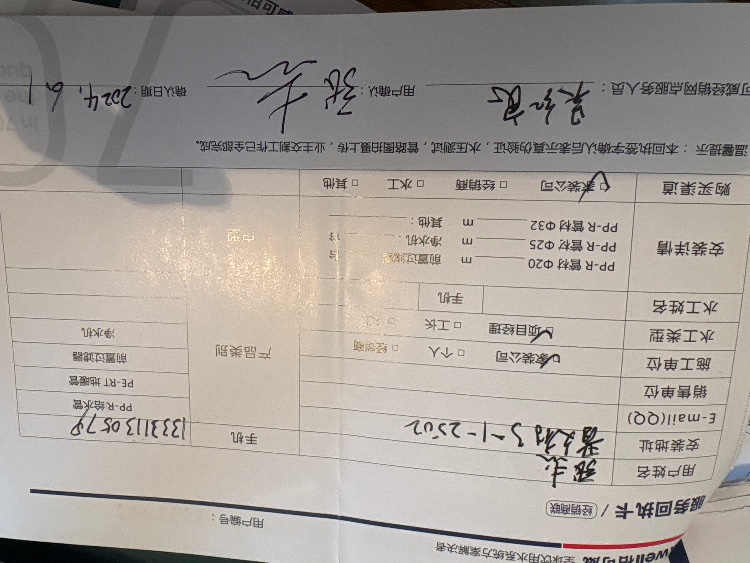 well 伯可威 全球饮用水系统方案解决者
服务回执卡 / 经销商联
用户编号：
用户姓名
安装地址 3-1-2502 手机 13331130578
E-mail(QQ) 产品类别 PP-R 给水管
销售单位 PE-RT 地暖管
施工单位 家装公司 □ 个人 □ 经销商 前置过滤器
水工类型 项目经理 □ 工长 □ 净水机
水工姓名 手机
安装详情 PP-R 管材 Φ20 m 前置过滤
PP-R 管材 Φ25 m 净水机 户型
PP-R 管材 Φ32 m 其他：
购买渠道 家装公司 □ 经销商 □ 水工 □ 其他
温馨提示：本回执签字确认后认表示真伪验证，水压测试，管路图拍摄上传，业主交割工作已全部完成。
可威经销网点服务人员： 用户确认： 确认日期：2024.6.1